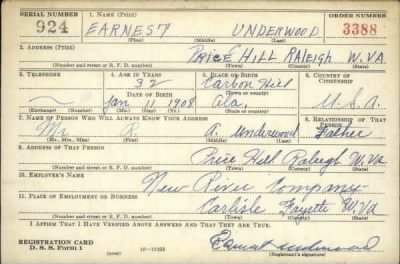 SERIAL NUMBER 1. NAME (Print) ORDER NUMBER
924 EARNEST UNDERWOOD 3388
(First) (Middle) (Last)
2. ADDRESS (Print)
PRICE HILL RALEIGH W.VA
(Number and street or R. F. D. number) (Town) (County) (State)
3. TELEPHONE 4. AGE IN YEARS 5. PLACE OF BIRTH 6. COUNTRY OF CITIZENSHIP
32 Carbon Hill
DATE OF BIRTH (Town or county)
Jan 11 1908 Ala. U.S.A
(Exchange) (Number) (Mo.) (Day) (Yr.) (State or country)
7. NAME OF PERSON WHO WILL ALWAYS KNOW YOUR ADDRESS 8. RELATIONSHIP OF THAT PERSON
Mr R A. Underwood Father
(Mr., Mrs., Miss) (First) (Middle) (Last)
9. ADDRESS OF THAT PERSON
Price Hill Raleigh W.VA
(Number and street or R. F. D. number) (Town) (County) (State)
10. EMPLOYER'S NAME
New River Company
11. PLACE OF EMPLOYMENT OR BUSINESS
Carlisle Fayette W.VA
(Number and street or R. F. D. number) (Town) (County) (State)
I AFFIRM THAT I HAVE VERIFIED ABOVE ANSWERS AND THAT THEY ARE TRUE.
REGISTRATION CARD
D. S. S. Form 1 (over) Earnest Underwood
(Registrant's signature)